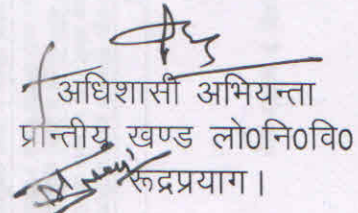 अधिशासी अभियन्ता
प्रान्तीय खण्ड लो०नि०वि०
रूद्रप्रयाग।